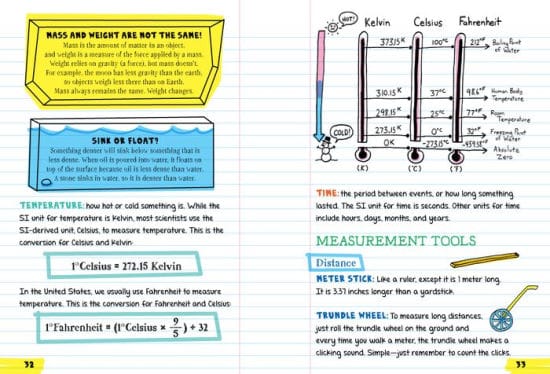 MASS AND WEIGHT ARE NOT THE SAME!
Mass is the amount of matter in an object,
and weight is a measure of the force applied by a mass.
Weight relies on gravity (a force), but mass doesn't.
For example, the moon has less gravity than the earth,
so objects weigh less there than on Earth.
Mass always remains the same. Weight changes.
SINK OR FLOAT?
Something denser will sink below something that is
less dense. When oil is poured into water, it floats on
top of the surface because oil is less dense than water.
A stone sinks in water, so it is denser than water.
TEMPERATURE: how hot or cold something is. While the
SI unit for temperature is Kelvin, most scientists use the
SI-derived unit, Celsius, to measure temperature. This is the
conversion for Celsius and Kelvin:
1°Celsius = 272.15 Kelvin
In the United States, we usually use Fahrenheit to measure
temperature. This is the conversion for Fahrenheit and Celsius:
1°Fahrenheit = (1°Celsius × 9/5) + 32
32
HOT!
Kelvin Celsius Fahrenheit
373.15K 100°C 212°F Boiling Point
of Water
310.15K 37°C 98.6°F Human Body
Temperature
298.15K 25°C 77°F Room
Temperature
COLD! 273.15K 0°C 32°F Freezing Point
of Water
0K Absolute
Zero
(K) (°C) (°F)
TIME: the period between events, or how long something
lasted. The SI unit for time is seconds. Other units for time
include hours, days, months, and years.
MEASUREMENT TOOLS
Distance
METER STICK: Like a ruler, except it is 1 meter long.
It is 3.37 inches longer than a yardstick.
TRUNDLE WHEEL: To measure long distances,
just roll the trundle wheel on the ground and
every time you walk a meter, the trundle wheel makes a
clicking sound. Simple—just remember to count the clicks.
33